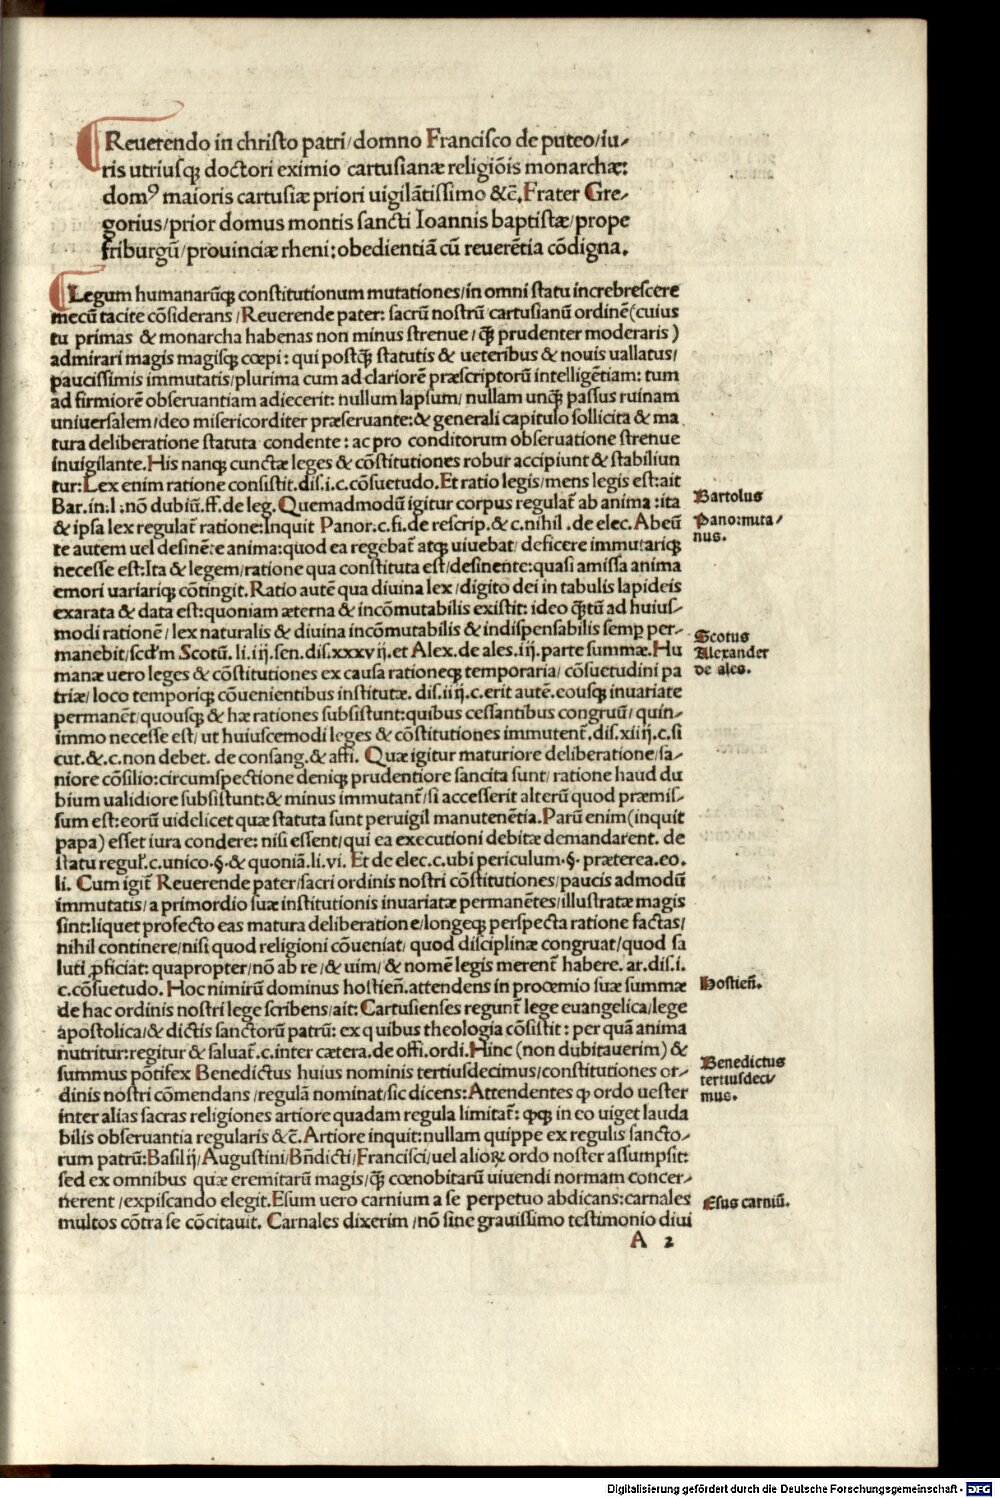 Reuerendo in christo patri/domno Francisco de puteo/iu-
ris utriusq̃ doctori eximio cartusianæ religiõis monarchæ:
domꝰ maioris cartusiæ priori uigilãtissimo &c̃.Frater Gre-
gorius/prior domus montis sancti Ioannis baptistæ/prope
friburgũ/prouinciæ rheni:obedientiã cũ reuerẽtia cõdigna.
Legum humanarũq̃ constitutionum mutationes/in omni statu increbrescere
mecũ tacite cõsiderans/Reuerende pater: sacrũ nostrũ cartusianũ ordinẽ(cuius
tu primas & monarcha habenas non minus strenue/q̃ prudenter moderaris)
admirari magis magisq̃ cœpi: qui postq̃ statutis & ueteribus & nouis uallatus/
paucissimis immutatis/plurima cum ad clariorẽ præscriptorũ intelligẽtiam: tum
ad firmiorẽ obseruantiam adiecerit: nullum lapsum/nullam unq̃ passus ruinam
uniuersalem/deo misericorditer præseruante:& generali capitulo sollicita & ma
tura deliberatione statuta condente: ac pro conditorum obseruatione strenue
inuigilante.His nanq̃ cunctæ leges & cõstitutiones robur accipiunt & stabiliun
tur:Lex enim ratione consistit.dis.i.c.cõsuetudo.Et ratio legis/mens legis est:ait
Bar.in.l.nõ dubiũ.ff.de leg.Quemadmodũ igitur corpus regulat̃ ab anima:ita
& ipsa lex regulat̃ ratione:Inquit Panor.c.fi.de rescrip.& c.nihil.de elec.Abeũ
te autem uel desinẽte anima:quod ea regebat̃ atq̃ uiuebat/deficere immutariq̃
necesse est:Ita & legem/ratione qua constituta est/desinente:quasi amissa anima
emori uariariq̃ cõtingit.Ratio autẽ qua diuina lex/digito dei in tabulis lapideis
exarata & data est:quoniam æterna & incõmutabilis existit: ideo q̃tũ ad huius-
modi rationẽ/lex naturalis & diuina incõmutabilis & indispensabilis semꝑ per-
manebit/scd'm Scotũ.li.iij.sen.dis.xxxvij.et Alex.de ales.iij.parte summæ.Hu
manæ uero leges & cõstitutiones ex causa rationeq̃ temporaria/cõsuetudini pa
triæ/loco temporiq̃ cõuenientibus institutæ.dis.iiij.c.erit autẽ.eousq̃ inuariate
permanẽt/quousq̃ & hæ rationes subsistunt:quibus cessantibus congruũ/quin-
immo necesse est/ut huiuscemodi leges & cõstitutiones immutent̃.dis.xiiij.c.si
cut.&.c.non debet.de consang.& affi. Quæ igitur maturiore deliberatione/sa-
niore cõsilio:circumspectione deniq̃ prudentiore sancita sunt/ratione haud du
bium ualidiore subsistunt:& minus immutant̃/si accesserit alterũ quod præmis-
sum est:eorũ uidelicet quæ statuta sunt peruigil manutenẽtia.Parũ enim(inquit
papa)esset iura condere: nisi essent/qui ea executioni debitæ demandarent. de
statu regul'.c.unico.§.& quoniã.li.vi. Et de elec.c.ubi periculum.§.præterea.eo.
li. Cum igit̃ Reuerende pater/sacri ordinis nostri cõstitutiones/paucis admodũ
immutatis/a primordio suæ institutionis inuariatæ permanẽtes/illustratæ magis
sint:liquet profecto eas matura deliberatione/longeq̃ perspecta ratione factas/
nihil continere/nisi quod religioni cõueniat/quod disciplinæ congruat/quod sa
luti ꝓficiat: quapropter/nõ ab re/& uim/& nomẽ legis merent̃ habere.ar.dis.i.
c.cõsuetudo.Hoc nimirũ dominus hostieñ.attendens in proœmio suæ summæ
de hac ordinis nostri lege scribens/ait:Cartusienses regunt̃ lege euangelica/lege
apostolica/& dictis sanctorũ patrũ: ex quibus theologia cõsistit: per quã anima
nutritur:regitur & saluat̃.c.inter cætera.de offi.ordi.Hinc(non dubitauerim)&
summus põtifex Benedictus huius nominis tertiusdecimus/constitutiones or-
dinis nostri cõmendans/regulã nominat/sic dicens:Attendentes ꝙ ordo uester
inter alias sacras religiones artiore quadam regula limitat̃: qꝗ in eo uiget lauda
bilis obseruantia regularis &c̃.Artiore inquit:nullam quippe ex regulis sancto-
rum patrũ:Basilij/Augustini/Bñdicti/Francisci/uel alioꝝ ordo noster assumpsit:
sed ex omnibus quæ eremitarũ magis/q̃ cœnobitarũ uiuendi normam concer-
nerent/expiscando elegit.Esum uero carnium a se perpetuo abdicans:carnales
multos cõtra se cõcitauit. Carnales dixerim/nõ sine grauissimo testimonio diui
A 2
Bartolus
Panormita/
nus.
Scotus
Alexander
de ales.
Hostieñ.
Benedictus
tertiusdeci/
mus.
Esus carniũ.
Digitalisierung gefördert durch die Deutsche Forschungsgemeinschaft - DFG